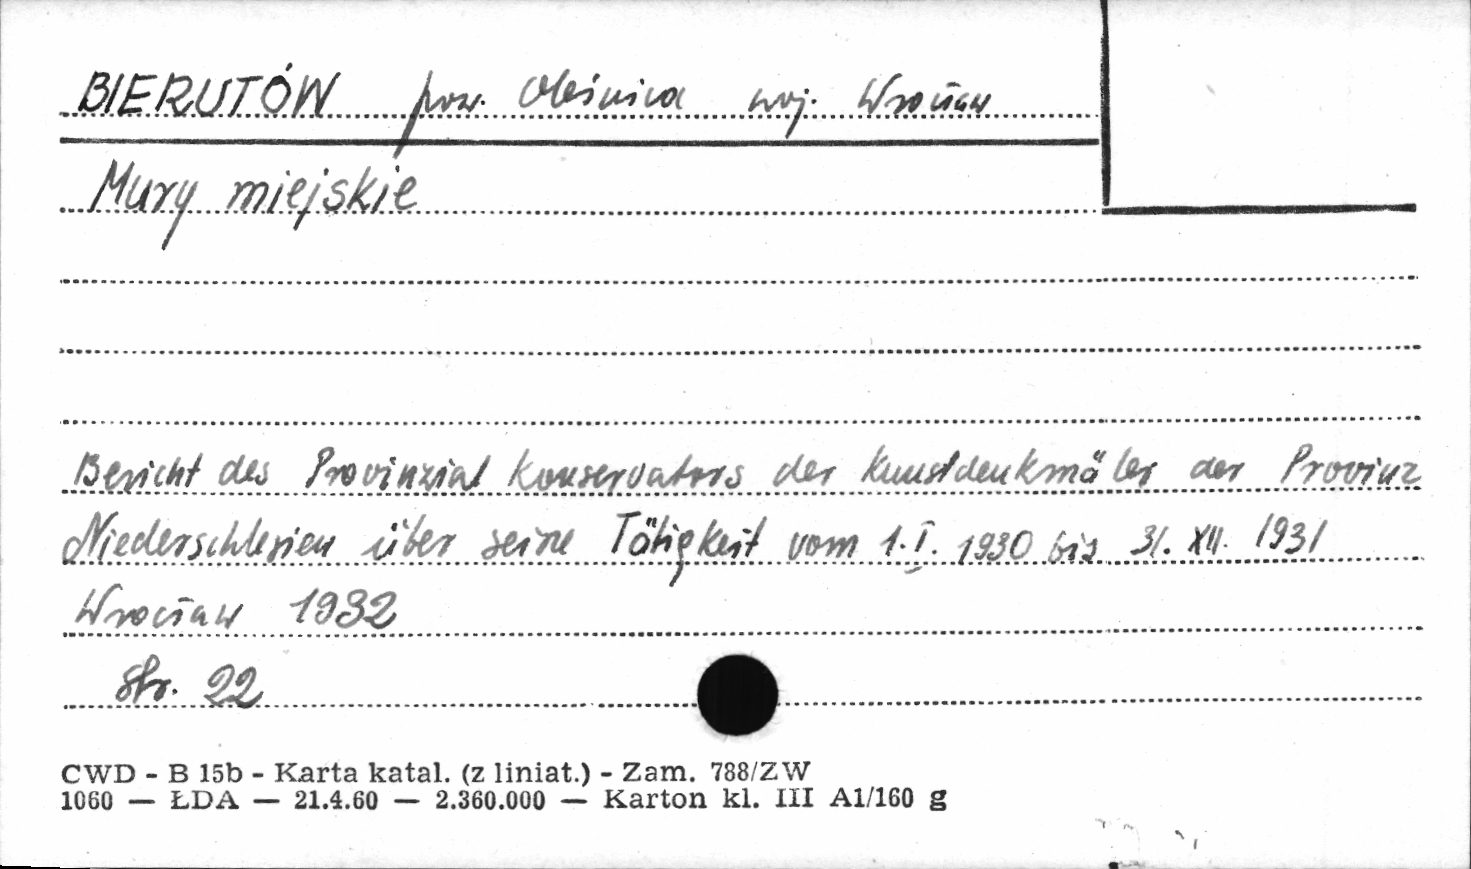 BIERUTÓW pow. Oleśnica woj. Wrocław
Mury miejskie
Bericht des Provinzial Konservators der Kunstdenkmäler der Provinz
Niederschlesien über seine Tätigkeit vom 1.I. 1930 bis 31. XII. 1931
Wrocław 1932
str. 22
CWD - B 15b - Karta katal. (z liniat.) - Zam. 788/ZW
1060 — ŁDA — 21.4.60 — 2.360.000 — Karton kl. III A1/160 g